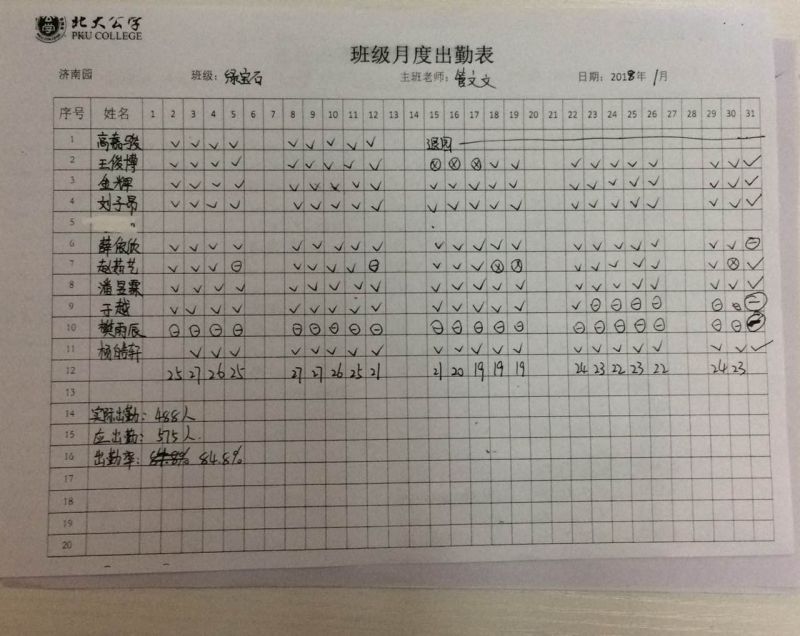 北大公学
PKU COLLEGE
班级月度出勤表
济南园 班级：绿宝石 主班老师：管文文 日期：2018年 1月
序号 姓名 1 2 3 4 5 6 7 8 9 10 11 12 13 14 15 16 17 18 19 20 21 22 23 24 25 26 27 28 29 30 31
1 高嘉骏 ✓ ✓ ✓ ✓ ✓ ✓ ✓ ✓ ✓ 退园
2 王俊博 ✓ ✓ ✓ ✓ ✓ ✓ ✓ ✓ ✓ ⊗ ⊗ ⊗ ✓ ✓ ✓ ✓ ✓ ✓ ✓ ✓ ✓ ✓
3 金辉 ✓ ✓ ✓ ✓ ✓ ✓ ✓ ✓ ✓ ✓ ✓ ✓ ✓ ✓ ✓ ✓ ✓ ✓ ✓ ✓ ✓ ✓
4 刘子昂 ✓ ✓ ✓ ✓ ✓ ✓ ✓ ✓ ✓ ✓ ✓ ✓ ✓ ✓ ✓ ✓ ✓ ✓ ✓ ✓ ✓ ✓
5
6 薛依欣 ✓ ✓ ✓ ✓ ✓ ✓ ✓ ✓ ✓ ✓ ✓ ✓ ✓ ✓ ✓ ✓ ✓ ✓ ✓ ✓ ✓ ⊖
7 赵茹艺 ✓ ✓ ✓ ⊖ ✓ ✓ ✓ ✓ ⊖ ✓ ✓ ✓ ⊗ ⊗ ✓ ✓ ✓ ✓ ✓ ✓ ⊗ ✓
8 潘昱霖 ✓ ✓ ✓ ✓ ✓ ✓ ✓ ✓ ✓ ✓ ✓ ✓ ✓ ✓ ✓ ✓ ✓ ✓ ✓ ✓ ✓ ✓
9 于越 ✓ ✓ ✓ ✓ ✓ ✓ ✓ ✓ ✓ ✓ ✓ ✓ ✓ ✓ ✓ ⊖ ⊖ ⊖ ⊖ ⊖ ⊖ ⊖
10 樊雨辰 ⊖ ⊖ ⊖ ⊖ ⊖ ⊖ ⊖ ⊖ ⊖ ⊖ ⊖ ⊖ ⊖ ⊖ ⊖ ⊖ ⊖ ⊖ ⊖ ⊖ ⊖ ⊖
11 杨皓轩 ✓ ✓ ✓ ✓ ✓ ✓ ✓ ✓ ✓ ✓ ✓ ✓ ✓ ✓ ✓ ✓ ✓ ✓ ✓ ✓ ✓
12 25 27 26 25 27 27 26 25 21 21 20 19 19 19 24 23 22 23 22 24 23
13
14 实际出勤：488人
15 应出勤：575人.
16 出勤率：84.8%
17
18
19
20